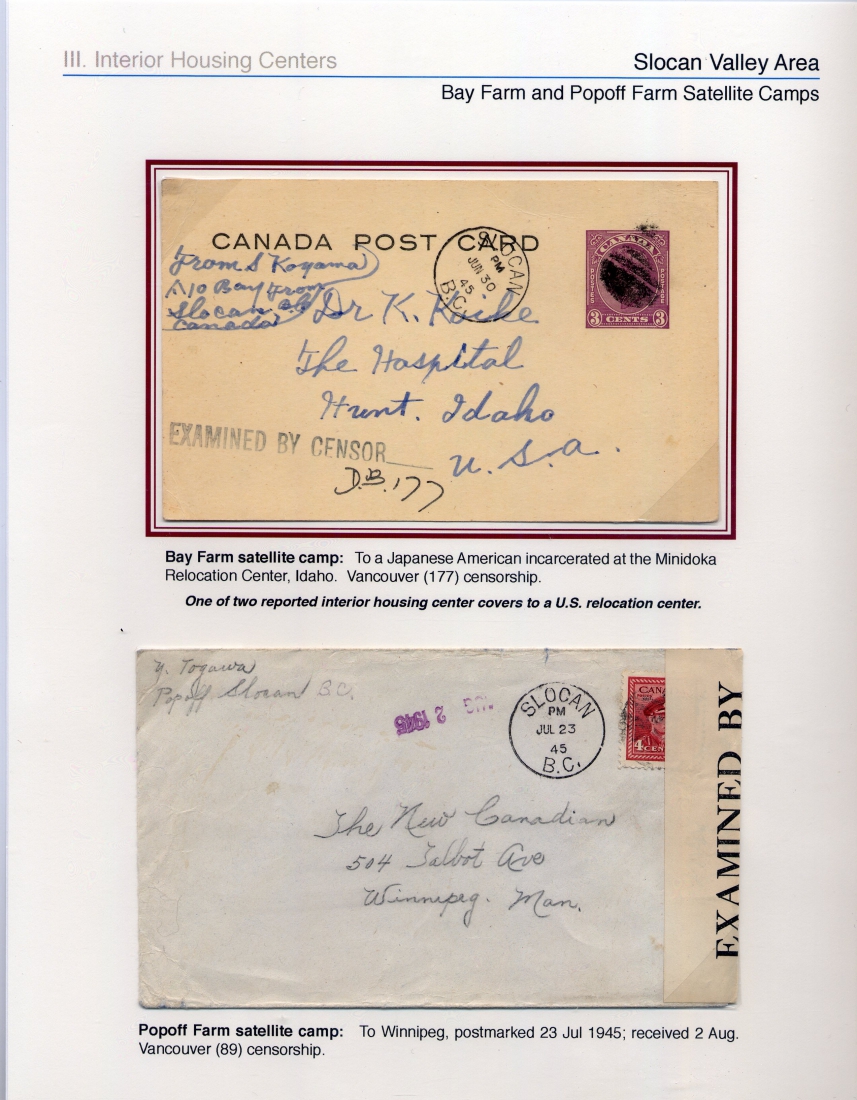 III. Interior Housing Centers
Slocan Valley Area
Bay Farm and Popoff Farm Satellite Camps
CANADA POST CARD
SLOCAN
PM
JUN 30
45
B.C.
CANADA
POSTES
POSTAGE
3 CENTS 3
From S Koyama
A10 Bay From
Slocan, B.C.
Canada
Dr K. Koike
The Hospital
Hunt. Idaho
U.S.A.
EXAMINED BY CENSOR
D.B.177
Bay Farm satellite camp: To a Japanese American incarcerated at the Minidoka
Relocation Center, Idaho. Vancouver (177) censorship.
One of two reported interior housing center covers to a U.S. relocation center.
Y. Togawa
Popoff Slocan B.C.
AUG 2 1945
SLOCAN
PM
JUL 23
45
B.C.
CANA
4 CEN
EXAMINED BY
The New Canadian
504 Talbot Ave
Winnipeg. Man.
Popoff Farm satellite camp: To Winnipeg, postmarked 23 Jul 1945; received 2 Aug.
Vancouver (89) censorship.